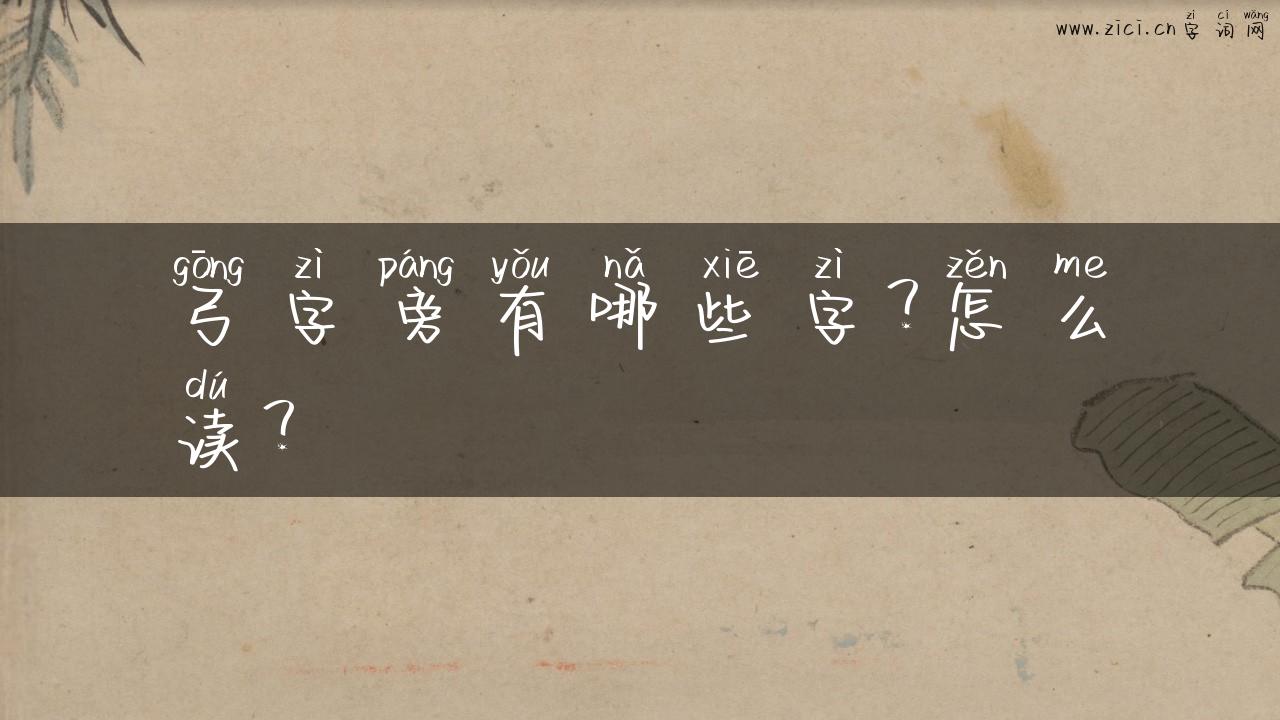 zì cí wǎng
www.zici.cn 字 词 网
gōng zì páng yǒu nǎ xiē zì zěn me
弓 字 旁 有 哪 些 字 ? 怎 么
dú
读 ?